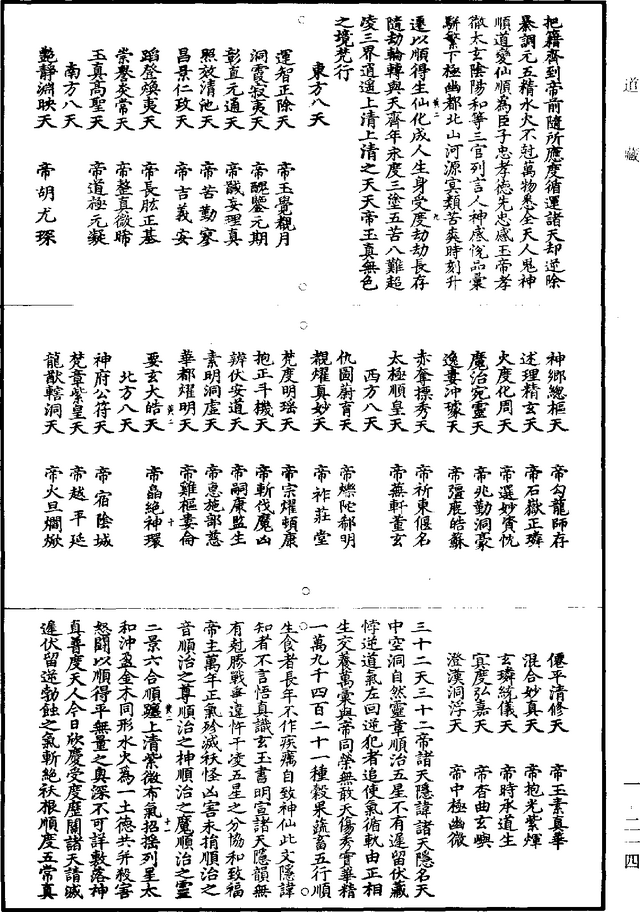 道藏
把籍齊到帝前隨所應度循運諸天却逆除
暴調元五精水火不尅萬物悉全天人鬼神
順道變仙順為臣子忠孝德先忠感玉帝孝
徹太玄陰陽和等三官列言人神感悅品彙
駢繁下極幽都北山河源冥類苦爽時刻升
黃二 九
遷以順得生仙化成人生身受度劫劫長存
隨劫輪轉與天齊年永度三塗五苦八難超
凌三界逍遥上清上清之天天帝玉真無色
之境梵行
東方八天
運智正除天 帝玉覺觀月
洞霞寂夷天 帝醒鑒元期
彰直元通天 帝諴妄理真
照放清池天 帝苦勤寥
昌景仁政天 帝吉義安
蹈登煥夷天 帝長肱正基
崇譽炎常天 帝整真微晞
玉真高聖天 帝道極元凝
南方八天
艶靜淵映天 帝胡尤琛
神鄉總樞天 帝勾龍師存
述理精玄天 帝石嶽正璘
火度化周天 帝選妙賡忱
魔治宛靈天 帝兆勤洞豪
逸妻沖璩天 帝彊鹿皓蘇
赤奮摽秀天 帝祈東偃名
太極順皇天 帝蕪軒董玄
西方八天
仇圖蔚育天 帝爍陀郝明
觀耀真妙天 帝祚莊堂
梵度明瑶天 帝宗耀頓康
抱正斗機天 帝斬伐魔凶
辨伏安道天 帝嗣康監生
素明洞虛天 帝惠施部慈
華都耀明天 帝雞樞婁倫
黃二 十
要玄大皓天 帝晶絶神環
北方八天
神府公符天 帝宿陰城
梵章紫皇天 帝越平延
龍猷轄洞天 帝火旦爛燉
僊平清修天 帝玉素真華
混合妙真天 帝抱光紫煇
玄璘統儀天 帝時承道生
冥度弘嘉天 帝杳曲玄嶼
澄漢洞浮天 帝中極幽微
三十二天三十二帝諸天隱諱諸天隱名天
中空洞自然靈章順治五星不有遲留伏藏
悖逆道氣左回逆犯者追使氣循軌由正相
生交養萬彙與帝同榮無敢天傷秀實華精
一萬九千四百二十一種穀果蔬畜五行順
生食者長年不作疾癘自致神仙此文隱諱
知者不言悟真識玄玉書明宣諸天隱韻無
有尅勝戰爭違忤干凌五星之分協和致福
帝主萬年正氣殄滅袄怪凶害永捐順治之
音順治之尊順治之神順治之魔順治之靈
黃二 十一
二景六合順躔上清紫微布氣招摇列星太
和沖盈金木同形水火為一土德共并殺害
怒鬭以順得平無量之奥深不可詳敷落神
真普度天人今日欣慶受度歷關諸天請滅
遲伏留逆勃蝕之氣斬絶袄根順度五常真
一－二一四